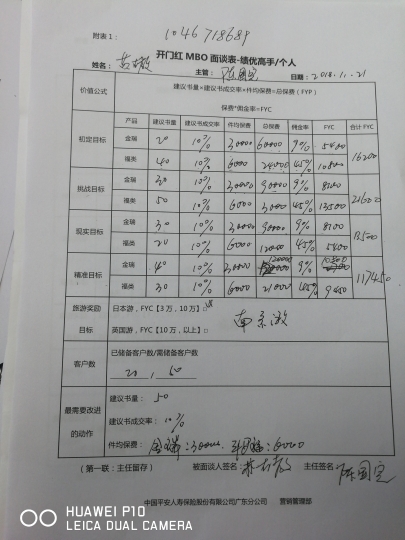 附表1：
1046718689
开门红 MBO 面谈表-绩优高手/个人
姓名： 主管： 日期：2018.11.21
价值公式 建议书量×建议书成交率×件均保费=总保费（FYP）
保费*佣金率=FYC
产品 建议书量 建议书成交率 件均保费 总保费 佣金率 FYC 合计 FYC
初定目标 金瑞 20 10% 30000 60000 9% 5400 16200
福类 40 10% 6000 24000 45% 10800
挑战目标 金瑞 30 10% 30000 90000 9% 8100 21600
福类 50 10% 6000 30000 45% 13500
现实目标 金瑞 30 10% 30000 90000 9% 8100 13500
福类 20 10% 6000 12000 45% 5400
精准目标 金瑞 40 10% 30000 120000 9% 10800
福类 30 10% 6000 21000 45% 9450
旅游奖励 日本游，FYC【3万，10万】□
目标 英国游，FYC【10万，以上】□
客户数 已储备客户数/需储备客户数
20 , 50
最需要改进 建议书量： 50
建议书成交率： 10%
的动作 件均保费： 金瑞：30000 福：6000
（第一联：主任留存） 被面谈人签名： 主任签名：陈国宝
中国平安人寿保险股份有限公司广东分公司 营销管理部
HUAWEI P10
LEICA DUAL CAMERA